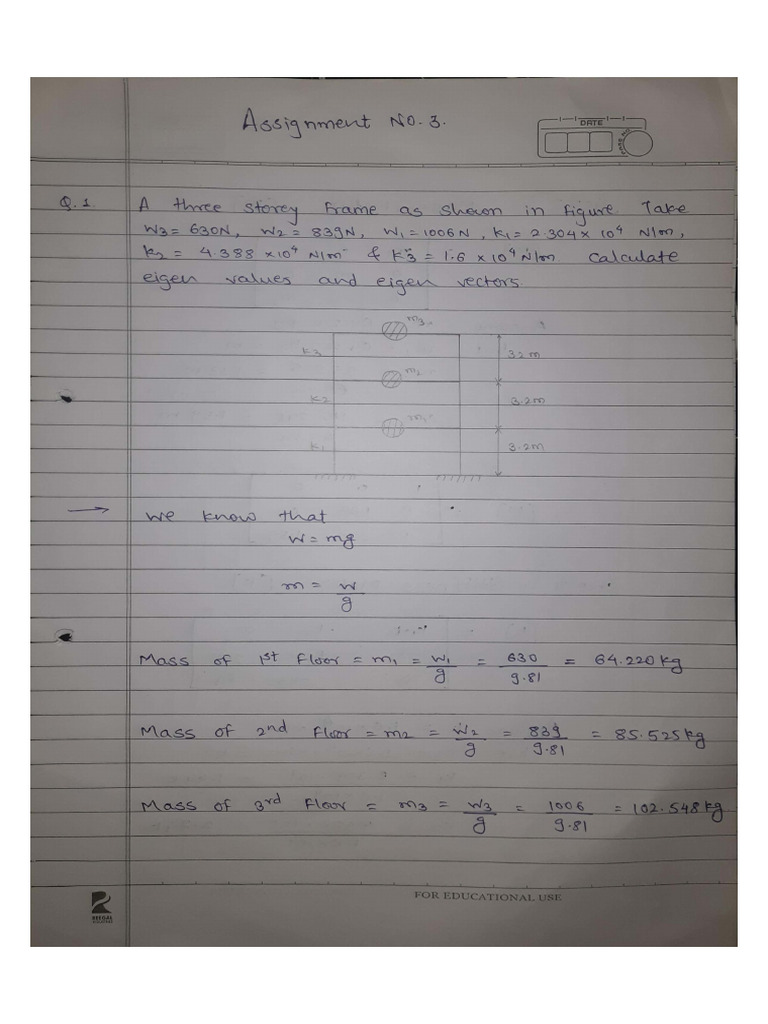 Assignment No. 3.
DATE
Q.1 A three storey frame as shown in figure. Take
W3 = 630N, W2 = 839N, W1 = 1006N, K1 = 2.304 × 10⁴ N/m,
K2 = 4.388 × 10⁴ N/m & K3 = 1.6 × 10⁴ N/m. Calculate
eigen values and eigen vectors.
m3
K3 3.2m
m2
K2 3.2m
m1
K1 3.2m
→ We know that
W = mg
m = W/g
Mass of 1st Floor = m1 = W1/g = 630/9.81 = 64.220 kg
Mass of 2nd Floor = m2 = W2/g = 839/9.81 = 85.525 kg
Mass of 3rd Floor = m3 = W3/g = 1006/9.81 = 102.548 kg
FOR EDUCATIONAL USE